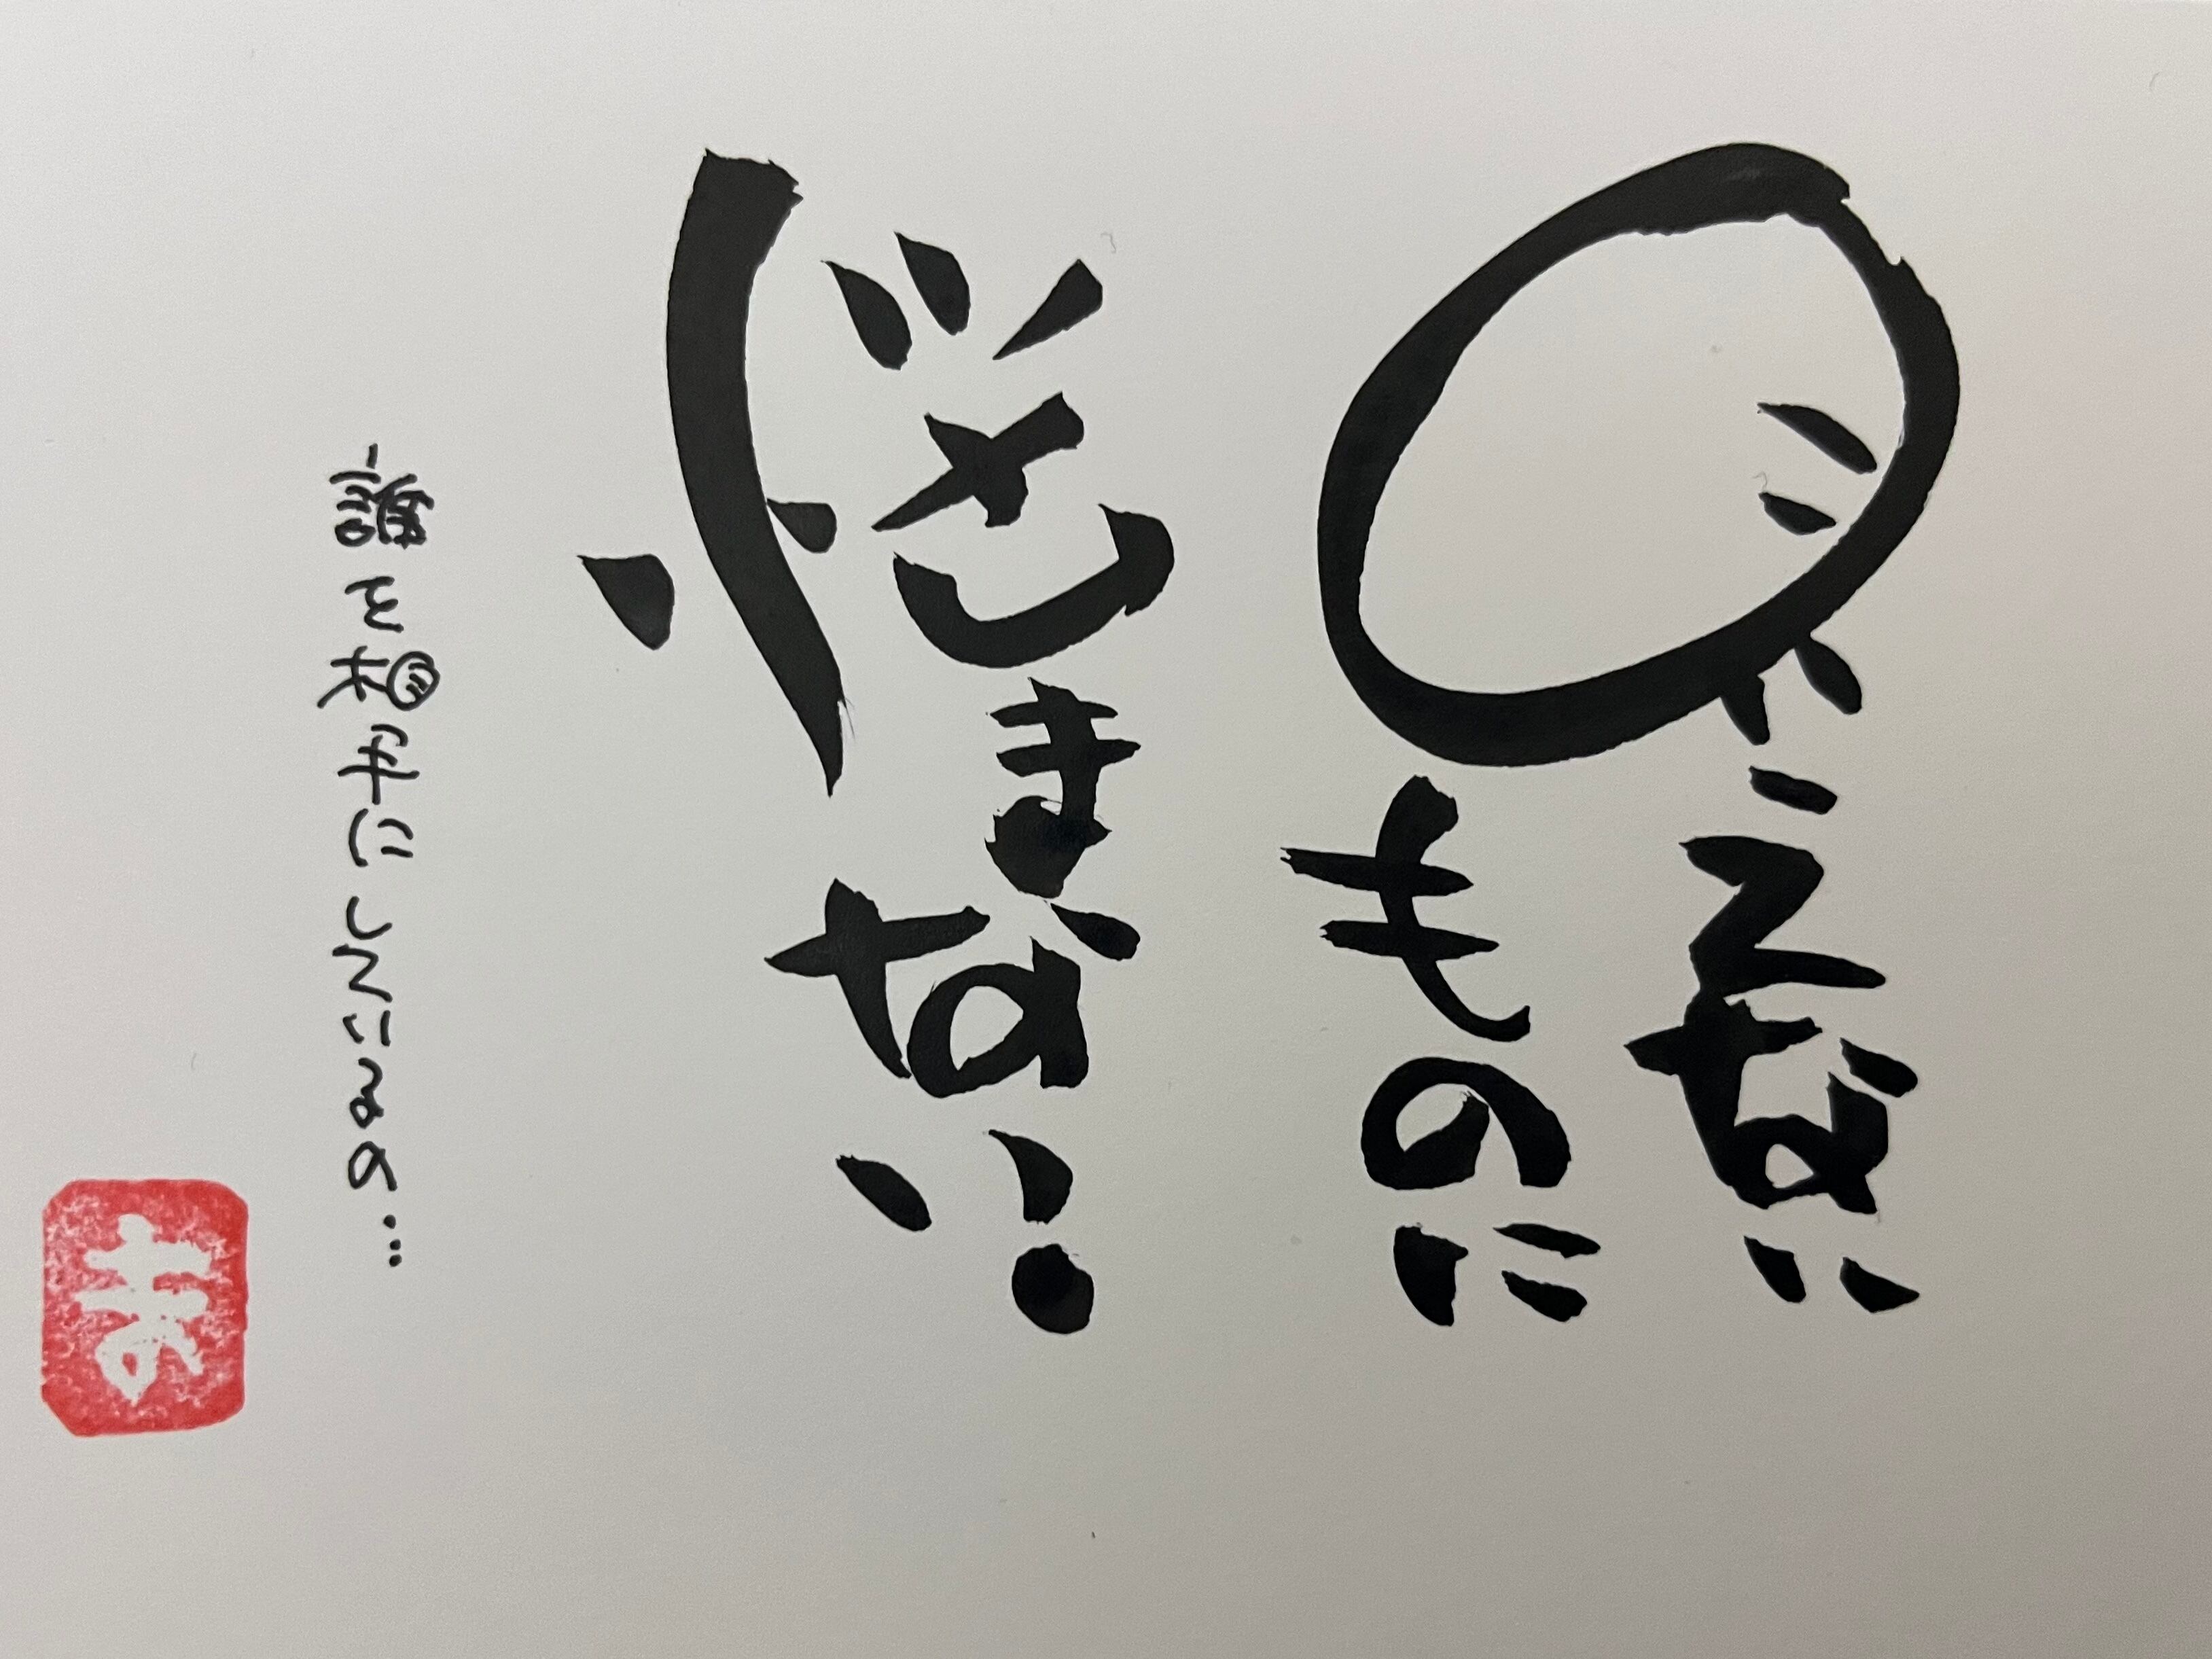 見えない
ものに
悩まない。
誰を相手にしているの…